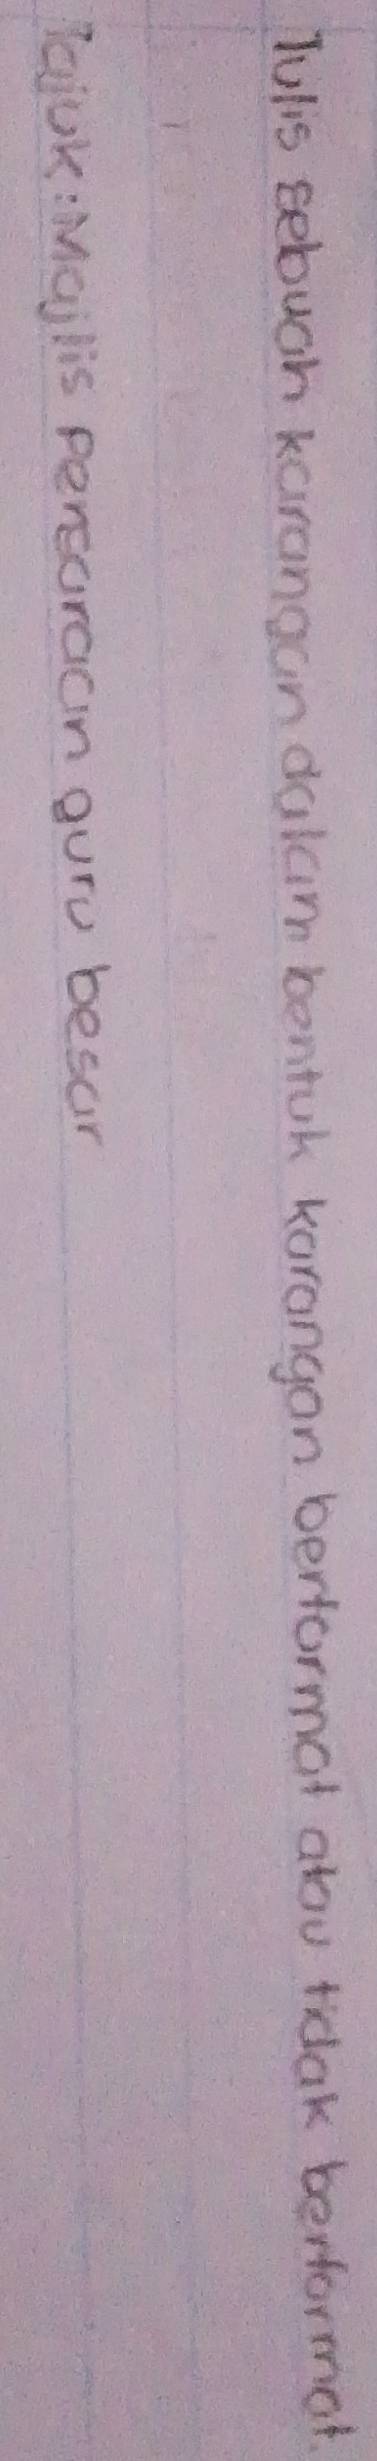 Tulis sebuah karangan dalam bentuk karangan berformat atau tidak berformat.
Tajuk : Majlis Persaraan guru besar